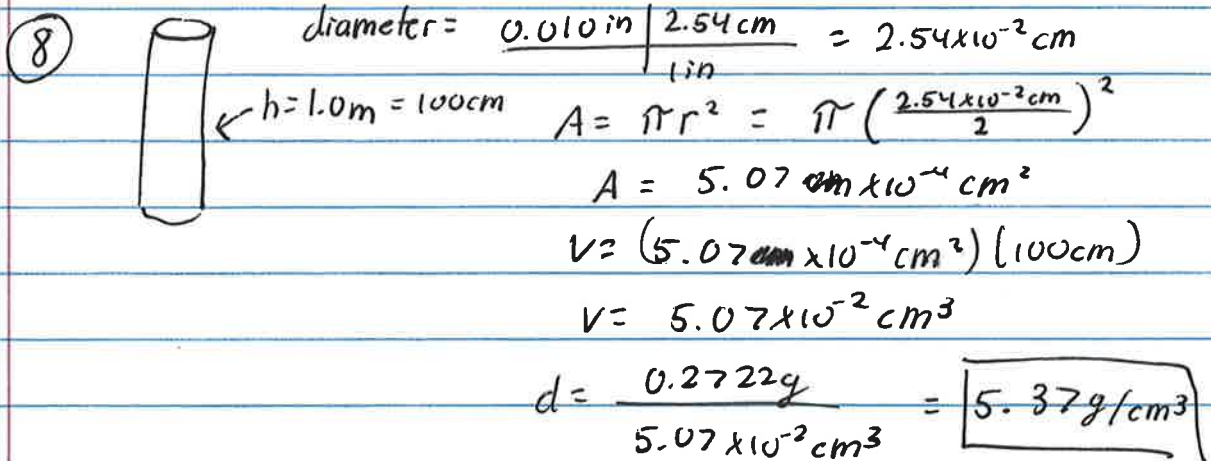 8
diameter = 0.010 in | 2.54 cm / 1 in = 2.54x10⁻² cm
h = 1.0m = 100cm
A = πr² = π(2.54x10⁻²cm / 2)²
A = 5.07 x10⁻⁴ cm²
V = (5.07 x10⁻⁴ cm²)(100cm)
V = 5.07x10⁻² cm³
d = 0.2722g / 5.07x10⁻²cm³ = 5.37g/cm³